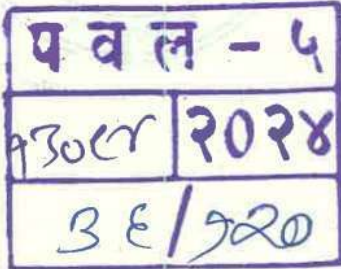 प व ल - ५
१३०८४ २०२४
३६/१२०